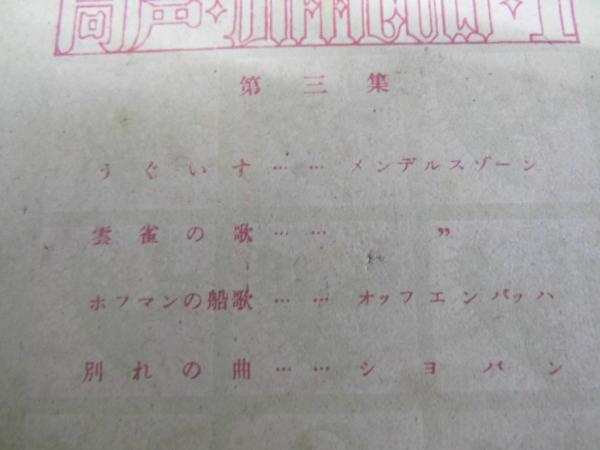 同声
第三集
うぐいす……メンデルスゾーン
雲雀の歌……〃
ホフマンの船歌……オッフエンバッハ
別れの曲……シヨパン